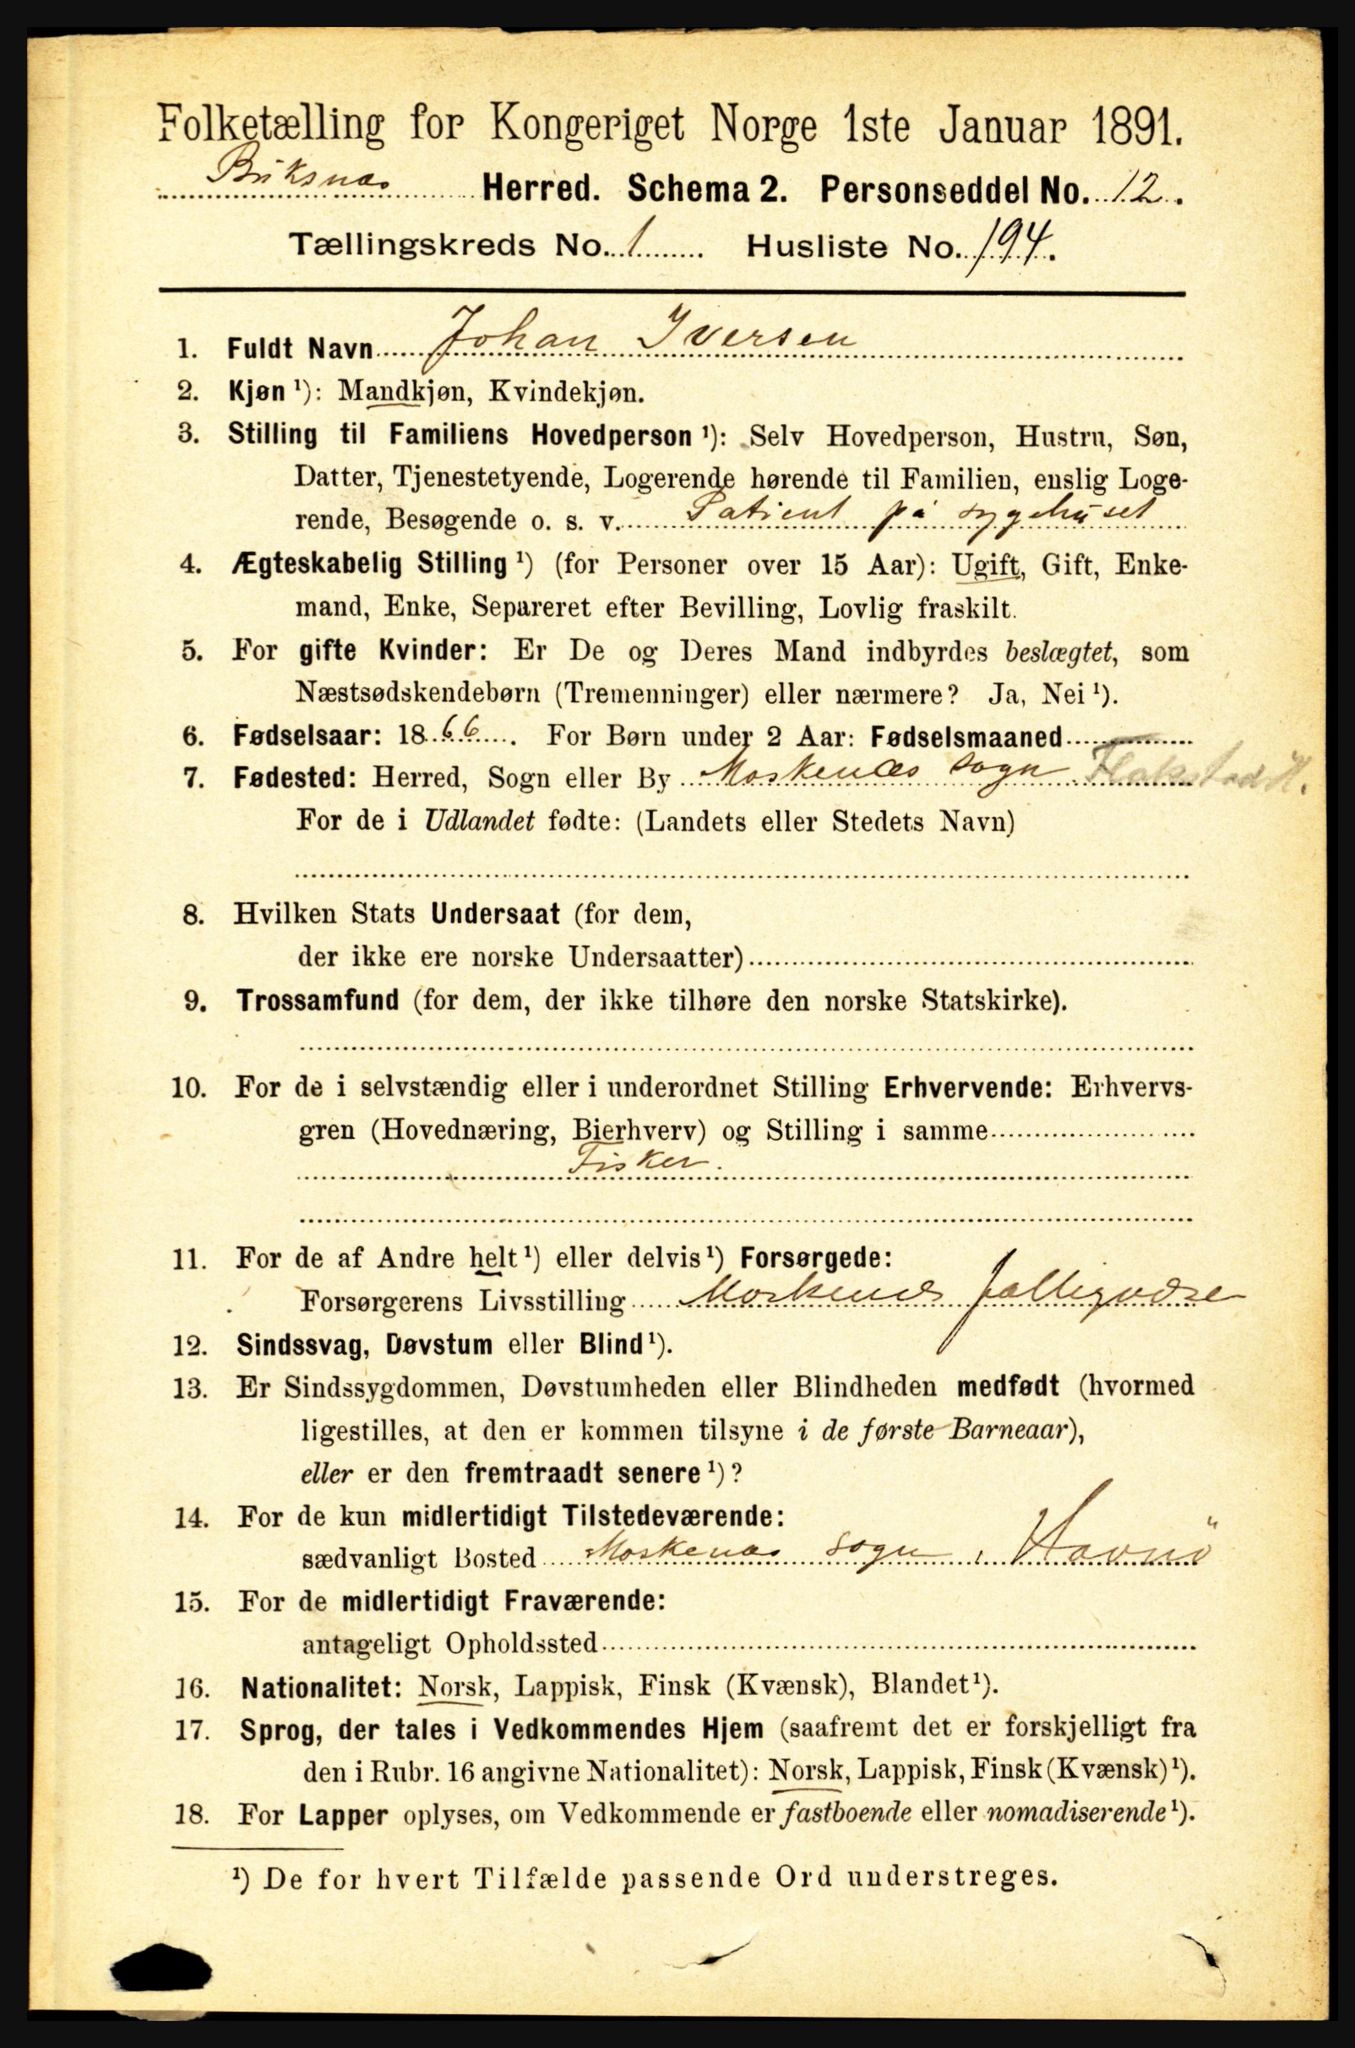 Folketælling for Kongeriget Norge 1ste Januar 1891.
Buksnæs Herred. Schema 2. Personseddel No. 12.
Tællingskreds No. 1 Husliste No. 194.
1. Fuldt Navn Johan Iversen
2. Kjøn ¹): Mandkjøn, Kvindekjøn.
3. Stilling til Familiens Hovedperson ¹): Selv Hovedperson, Hustru, Søn,
Datter, Tjenestetyende, Logerende hørende til Familien, enslig Loge-
rende, Besøgende o. s. v. Patient på sygehuset
4. Ægteskabelig Stilling ¹) (for Personer over 15 Aar): Ugift, Gift, Enke-
mand, Enke, Separeret efter Bevilling, Lovlig fraskilt.
5. For gifte Kvinder: Er De og Deres Mand indbyrdes beslægtet, som
Næstsødskendebørn (Tremenninger) eller nærmere? Ja, Nei ¹).
6. Fødselsaar: 1866. For Børn under 2 Aar: Fødselsmaaned
7. Fødested: Herred, Sogn eller By Moskenæs sogn Flakstad H.
For de i Udlandet fødte: (Landets eller Stedets Navn)
8. Hvilken Stats Undersaat (for dem,
der ikke ere norske Undersaatter)
9. Trossamfund (for dem, der ikke tilhøre den norske Statskirke).
10. For de i selvstændig eller i underordnet Stilling Erhvervende: Erhvervs-
gren (Hovednæring, Bierhverv) og Stilling i samme
Fisker.
11. For de af Andre helt ¹) eller delvis ¹) Forsørgede:
Forsørgerens Livsstilling Moskenæs
12. Sindssvag, Døvstum eller Blind ¹).
13. Er Sindssygdommen, Døvstumheden eller Blindheden medfødt (hvormed
ligestilles, at den er kommen tilsyne i de første Barneaar),
eller er den fremtraadt senere ¹)?
14. For de kun midlertidigt Tilstedeværende:
sædvanligt Bosted Moskenæs sogn, Havnö
15. For de midlertidigt Fraværende:
antageligt Opholdssted
16. Nationalitet: Norsk, Lappisk, Finsk (Kvænsk), Blandet ¹).
17. Sprog, der tales i Vedkommendes Hjem (saafremt det er forskjelligt fra
den i Rubr. 16 angivne Nationalitet): Norsk, Lappisk, Finsk (Kvænsk) ¹).
18. For Lapper oplyses, om Vedkommende er fastboende eller nomadiserende ¹).
¹) De for hvert Tilfælde passende Ord understreges.